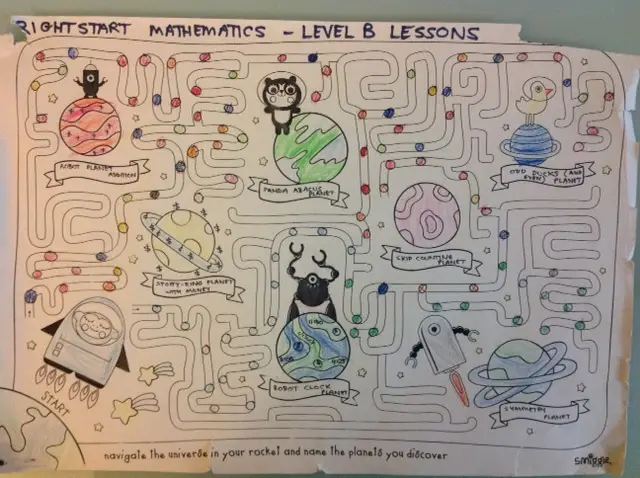 RIGHTSTART MATHEMATICS - LEVEL B LESSONS
ROBOT PLANET
ADDITION
PANDA ABACUS
PLANET
ODD DUCKS (AND
EVEN) PLANET
STORY-RING PLANET
WITH MONEY
SKIP COUNTING
PLANET
ROBOT CLOCK
PLANET
SYMMETRY
PLANET
START
navigate the universe in your rocket and name the planets you discover
smiggle